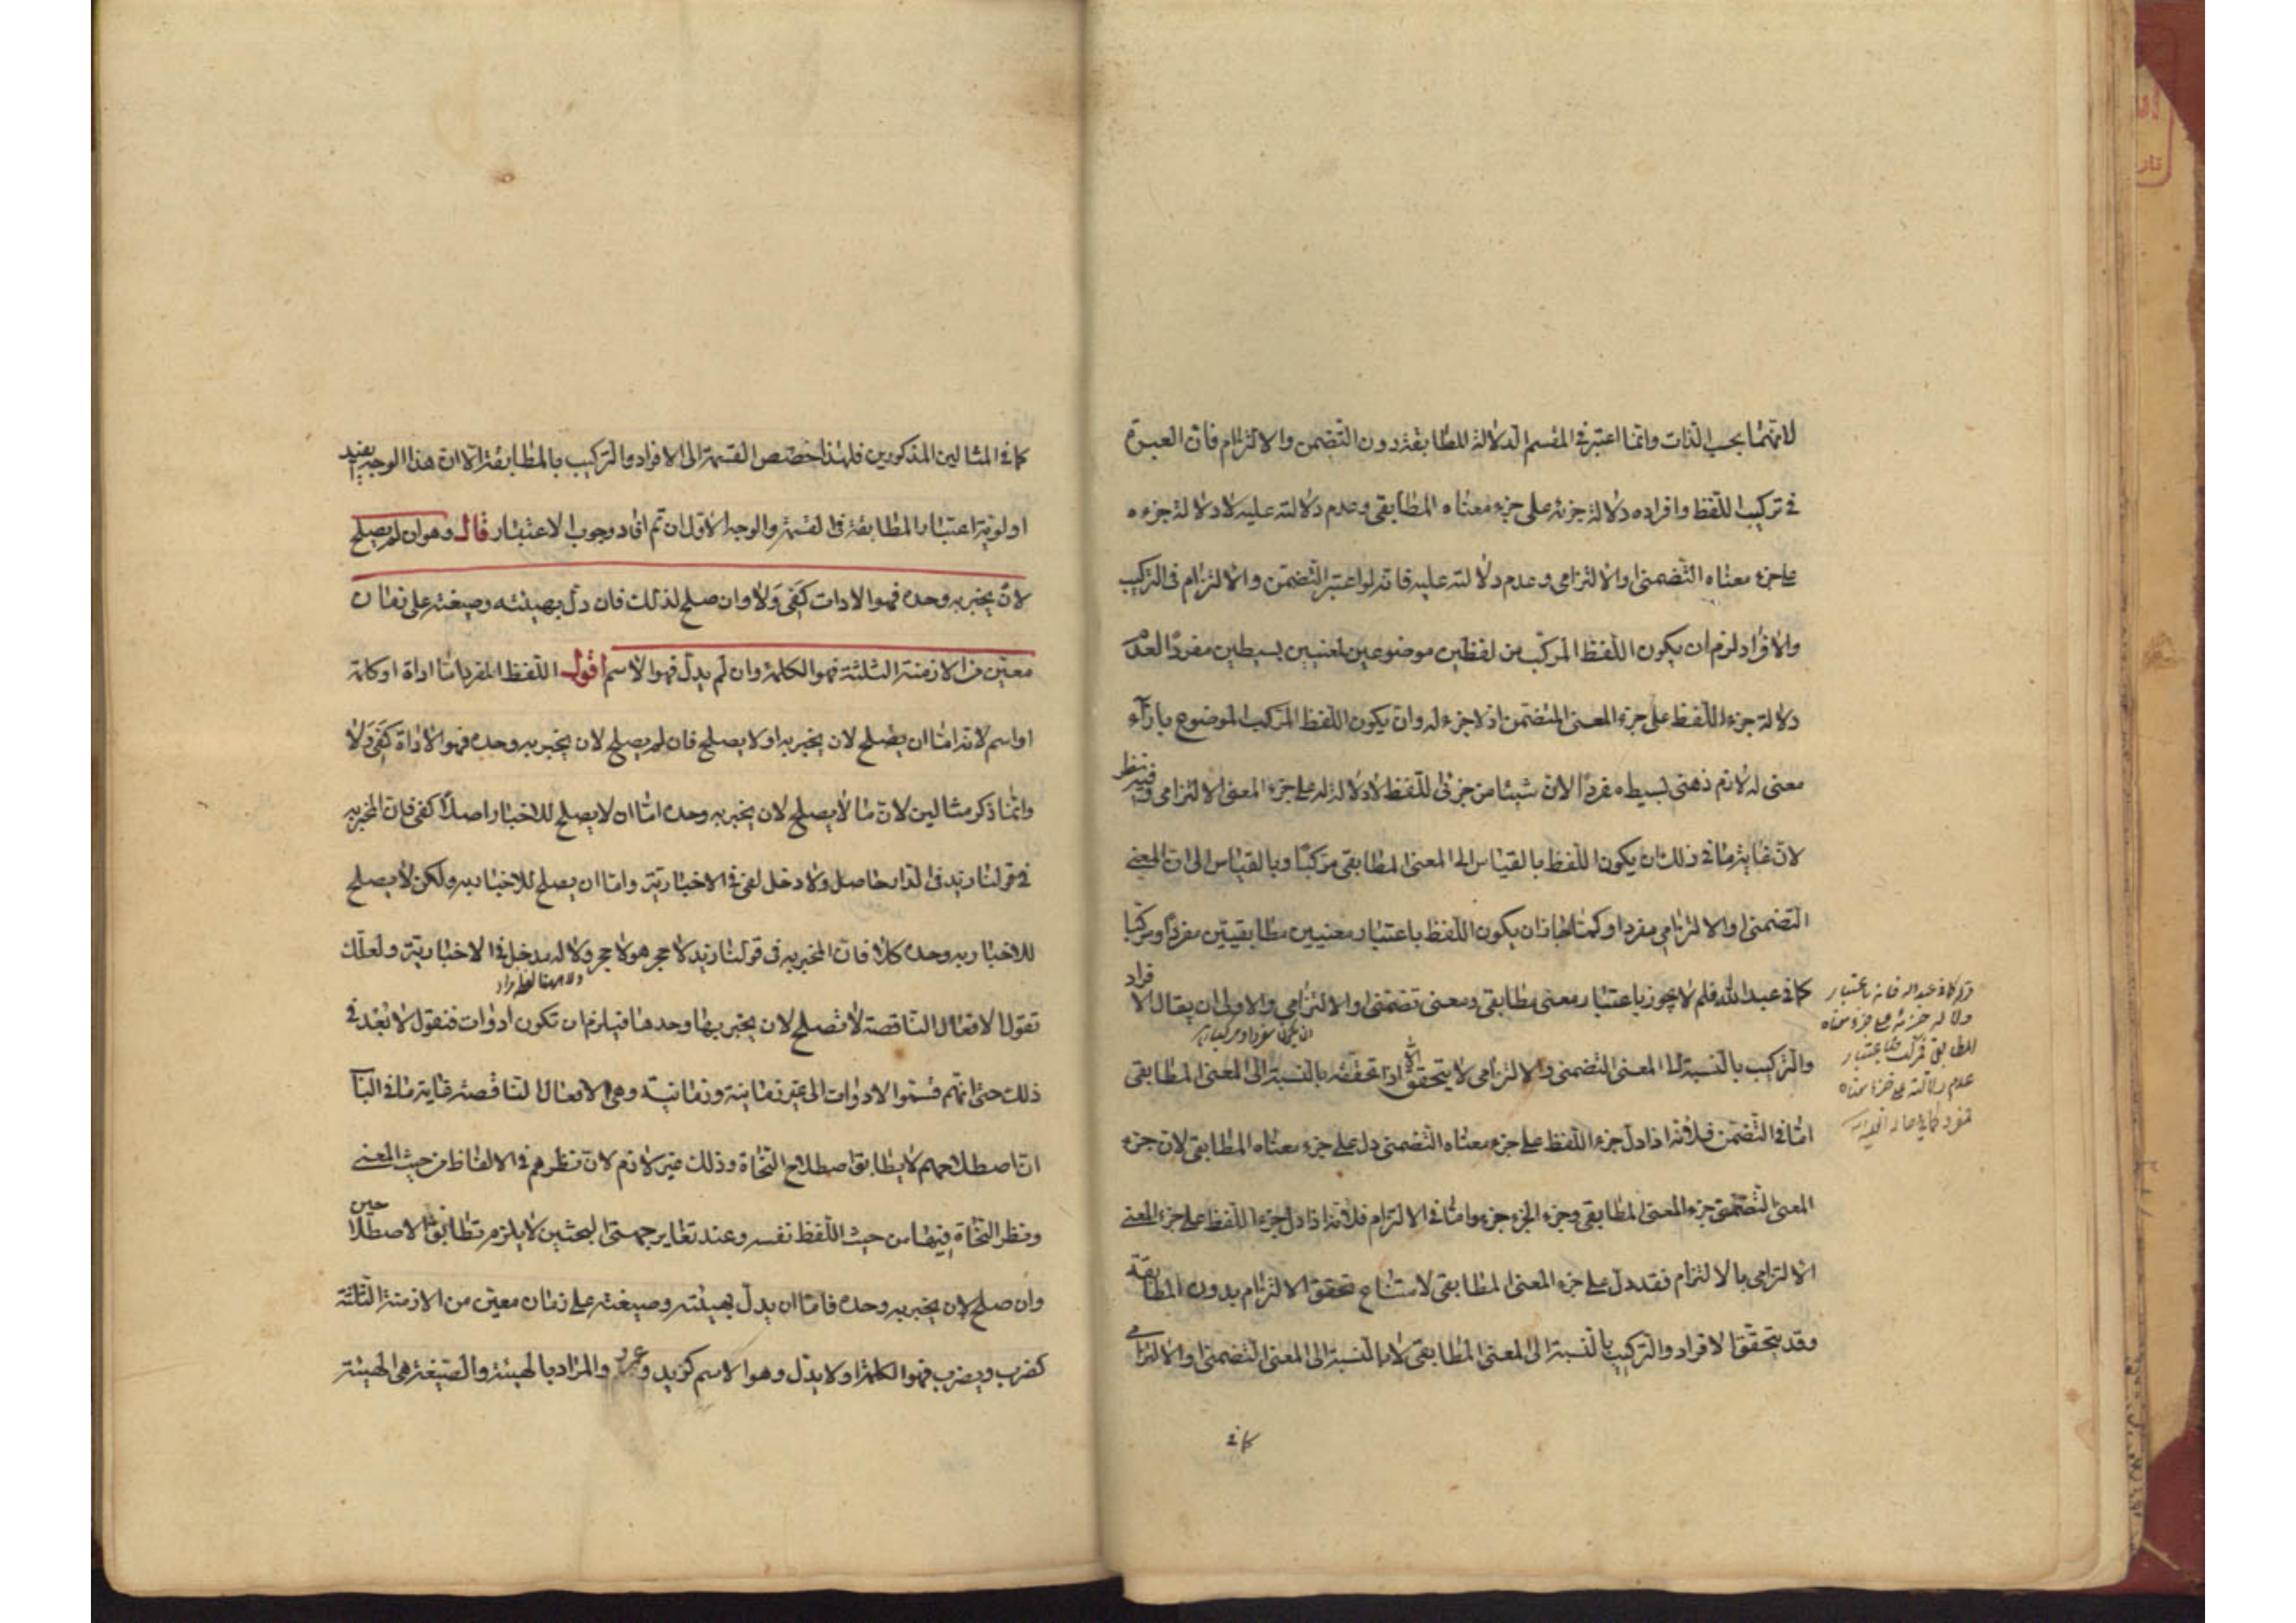 لانهما بحسب الذات وانما اعتبر في المقسم الدلالة المطابقة دون التضمن والالتزام فان العبرة
في تركيب اللفظ وافراده دلالة جزئه على جزء معناه المطابقي وعدم دلالته عليه لا دلالة جزءه
على جزء معناه التضمني او الالتزامي وعدم دلالته عليه فانه لو اعتبر التضمن والالتزام في التركيب
والافراد لزم ان يكون اللفظ المركب من لفظين موضوعين لمعنيين بسيطين مفردا لعدم
دلالة جزء اللفظ على جزء المعنى المتضمن اذ لا جزء له وان يكون اللفظ المركب الموضوع بازآء
معنى له لازم ذهني بسيط مفردا لان شيئا من جزئي اللفظ لا دلالة له على جزء المعنى الالتزامي وفيه نظر
لان غاية ما في ذلك ان يكون اللفظ بالقياس الى المعنى المطابقي مركبا وبالقياس الى المعنى
التضمني او الالتزامي مفردا وكما جاز ان يكون اللفظ باعتبار معنيين مطابقيين مفردا ومركبا
كما في عبد الله فلم لا يجوز باعتبار معنى مطابقي ومعنى تضمني او الالتزامي والاولى ان يقال الافراد
والتركيب بالنسبة الى المعنى التضمني والالتزامي لا يتحقق الا اذا تحقق بالنسبة الى المعنى المطابقي
اما في التضمن فلانه اذا دل جزء اللفظ على جزء معناه التضمني دل على جزء معناه المطابقي لان جزء
المعنى التضمني جزء المعنى المطابقي وجزء الجزء جزء واما في الالتزام فلانه اذا دل جزء اللفظ على جزء المعنى
الالتزامي بالالتزام فقد دل على جزء المعنى المطابقي لامتناع تحقق الالتزام بدون المطابقة
وقد يتحقق الافراد والتركيب بالنسبة الى المعنى المطابقي لا بالنسبة الى المعنى التضمني او الالتزامي
كما في
دلالة جزئه على جزء معناه
المطابقي مركب وباعتبار
عدم دلالته على جزء معناه
مفرد كما في حالة العلمية
كما في المثالين المذكورين فلهذا خصص القسمة الى الافراد والتركيب بالمطابقة الا ان هذا الوجه يفيد
اولوية اعتبار المطابقة في القسمة والوجه الاول ان تم افاد وجوب الاعتبار قال وهو ان لم يصلح
لان يخبر به وحده فهو الادات كفي ولا وان صلح لذلك فان دل بهيئته وصيغته على زمان
معين من الازمنة الثلثة فهو الكلمة وان لم يدل فهو الاسم اقول اللفظ المفرد اما اداة او كلمة
او اسم لانه اما ان يصلح لان يخبر به او لا يصلح فان لم يصلح لان يخبر به وحده فهو الاداة كفي ولا
وانما ذكر مثالين لان ما لا يصلح لان يخبر به وحده اما ان لا يصلح للاخبار اصلا كفي فان المخبر به
في قولنا زيد في الدار حاصل ولا دخل لفي في الاخبارية واما ان يصلح للاخبار به ولكن لا يصلح
للاخبار به وحده كلا فان المخبر به في قولنا زيد لا حجر هو لا حجر ولا له مدخل في الاخبارية ولعلك
تقول الافعال الناقصة لا تصلح لان يخبر بها وحدها فيلزم ان تكون ادوات فنقول لا بعد في
ذلك حتى انهم قسموا الادوات الى غير زمانية وزمانية وهي الافعال الناقصة غاية ما في الباب
ان اصطلاحهم لا يطابق اصطلاح النحاة وذلك غير لازم لان نظرهم في الالفاظ من حيث المعنى
ونظر النحاة فيها من حيث اللفظ نفسه وعند تغاير جهتي البحثين لا يلزم تطابق الاصطلاحين
وان صلح لان يخبر به وحده فاما ان يدل بهيئته وصيغته على زمان معين من الازمنة الثلثة
كضرب ويضرب فهو الكلمة او لا يدل وهو الاسم كزيد وعمرو والمراد بالهيئة والصيغة هي الهيئة